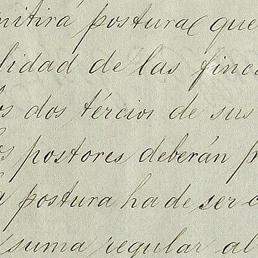 mitirá posturas que
lidad de las finca
os dos tércios de sus
os postores deberán pr
a postura ha de ser c
suma regular al